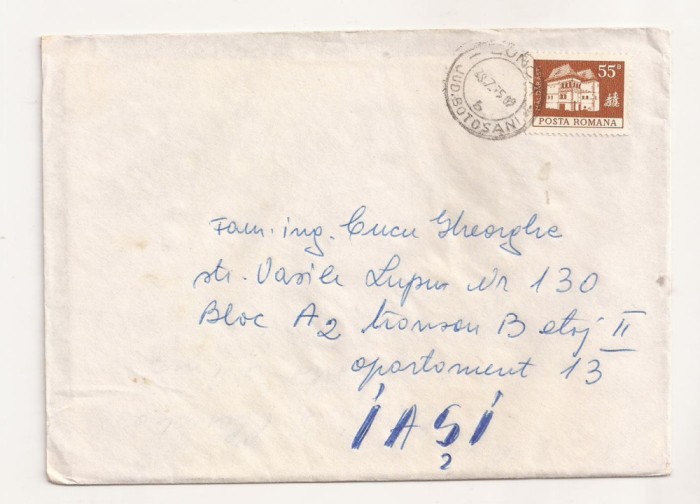 JUD. BOTOȘANI
55 B
MALDĂRĂȘTI
POSTA ROMANA
Fam. ing. Cucu Gheorghe
str. Vasile Lupu Nr 130
Bloc A2 tronson B etaj II
apartament 13
IAȘI
2